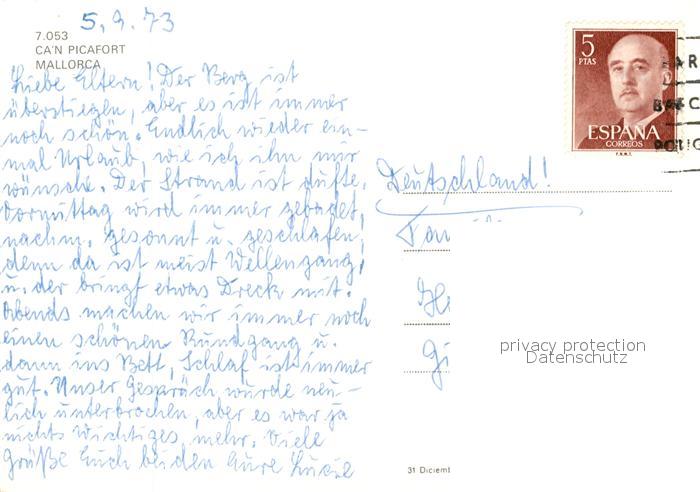 5.9.73
7.053
CA'N PICAFORT
MALLORCA
Liebe Eltern! Der Berg ist
überstiegen, aber es ist immer
noch schön. Endlich wieder ein-
mal Urlaub, wie ich ihn mir
wünsche. Der Strand ist dufte.
Vormittag wird immer gebadet,
nachm. gesonnt u. geschlafen,
denn da ist meist Wellengang,
u. der bringt etwas Dreck mit.
Abends machen wir immer noch
einen schönen Rundgang u.
dann ins Bett, Schlaf ist immer
gut. Unser Gespräch wurde neu-
lich unterbrochen, aber es war ja
nichts Wichtiges mehr. Viele
Grüße Euch beiden Eure
5
PTAS
ESPAÑA
CORREOS
F.N.M.T.
Deutschland!
privacy protection
Datenschutz
31 Diciem